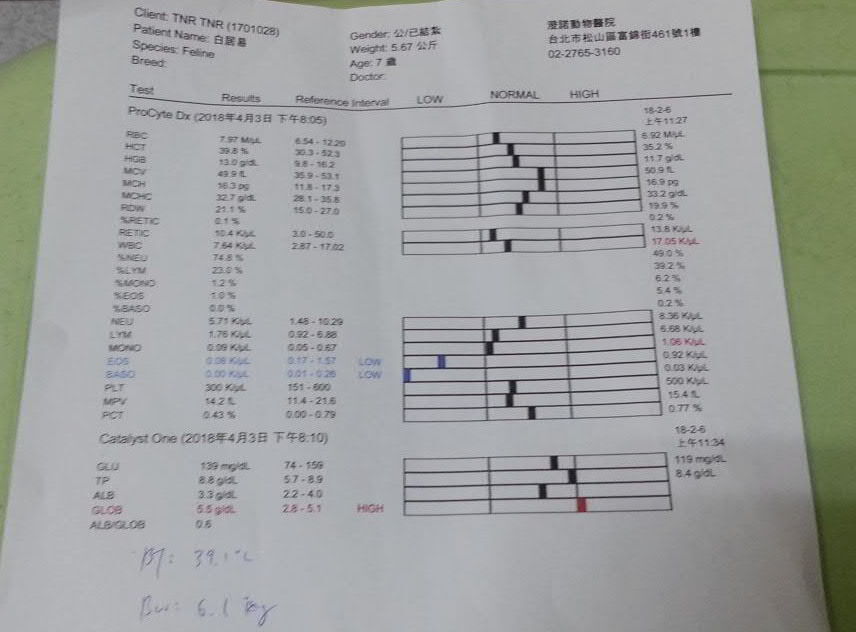 Client: TNR TNR (1701028)
Patient Name: 白居易
Species: Feline
Breed:
Gender: 公/已結紮
Weight: 5.67 公斤
Age: 7 歲
Doctor:
澄諾動物醫院
台北市松山區富錦街461號1樓
02-2765-3160
Test Results Reference Interval LOW NORMAL HIGH
ProCyte Dx (2018年4月3日 下午8:05) 18-2-6
上午11:27
RBC 7.97 M/µL 6.54 - 12.20 6.92 M/µL
HCT 39.8 % 30.3 - 52.3 35.2 %
HGB 13.0 g/dL 9.8 - 16.2 11.7 g/dL
MCV 49.9 fL 35.9 - 53.1 50.9 fL
MCH 16.3 pg 11.8 - 17.3 16.9 pg
MCHC 32.7 g/dL 28.1 - 35.8 33.2 g/dL
RDW 21.1 % 15.0 - 27.0 19.9 %
%RETIC 0.1 % 0.2 %
RETIC 10.4 K/µL 3.0 - 50.0 13.8 K/µL
WBC 7.64 K/µL 2.87 - 17.02 17.05 K/µL
%NEU 74.8 % 49.0 %
%LYM 23.0 % 39.2 %
%MONO 1.2 % 6.2 %
%EOS 1.0 % 5.4 %
%BASO 0.0 % 0.2 %
NEU 5.71 K/µL 1.48 - 10.29 8.36 K/µL
LYM 1.76 K/µL 0.92 - 6.88 6.68 K/µL
MONO 0.09 K/µL 0.05 - 0.67 1.06 K/µL
EOS 0.08 K/µL 0.17 - 1.57 LOW 0.92 K/µL
BASO 0.00 K/µL 0.01 - 0.26 LOW 0.03 K/µL
PLT 300 K/µL 151 - 600 500 K/µL
MPV 14.2 fL 11.4 - 21.6 15.4 fL
PCT 0.43 % 0.00 - 0.79 0.77 %
Catalyst One (2018年4月3日 下午8:10) 18-2-6
上午11:34
GLU 139 mg/dL 74 - 159 119 mg/dL
TP 8.8 g/dL 5.7 - 8.9 8.4 g/dL
ALB 3.3 g/dL 2.2 - 4.0
GLOB 5.5 g/dL 2.8 - 5.1 HIGH
ALB/GLOB 0.6
BT: 39.1°C
BW: 6.1 kg